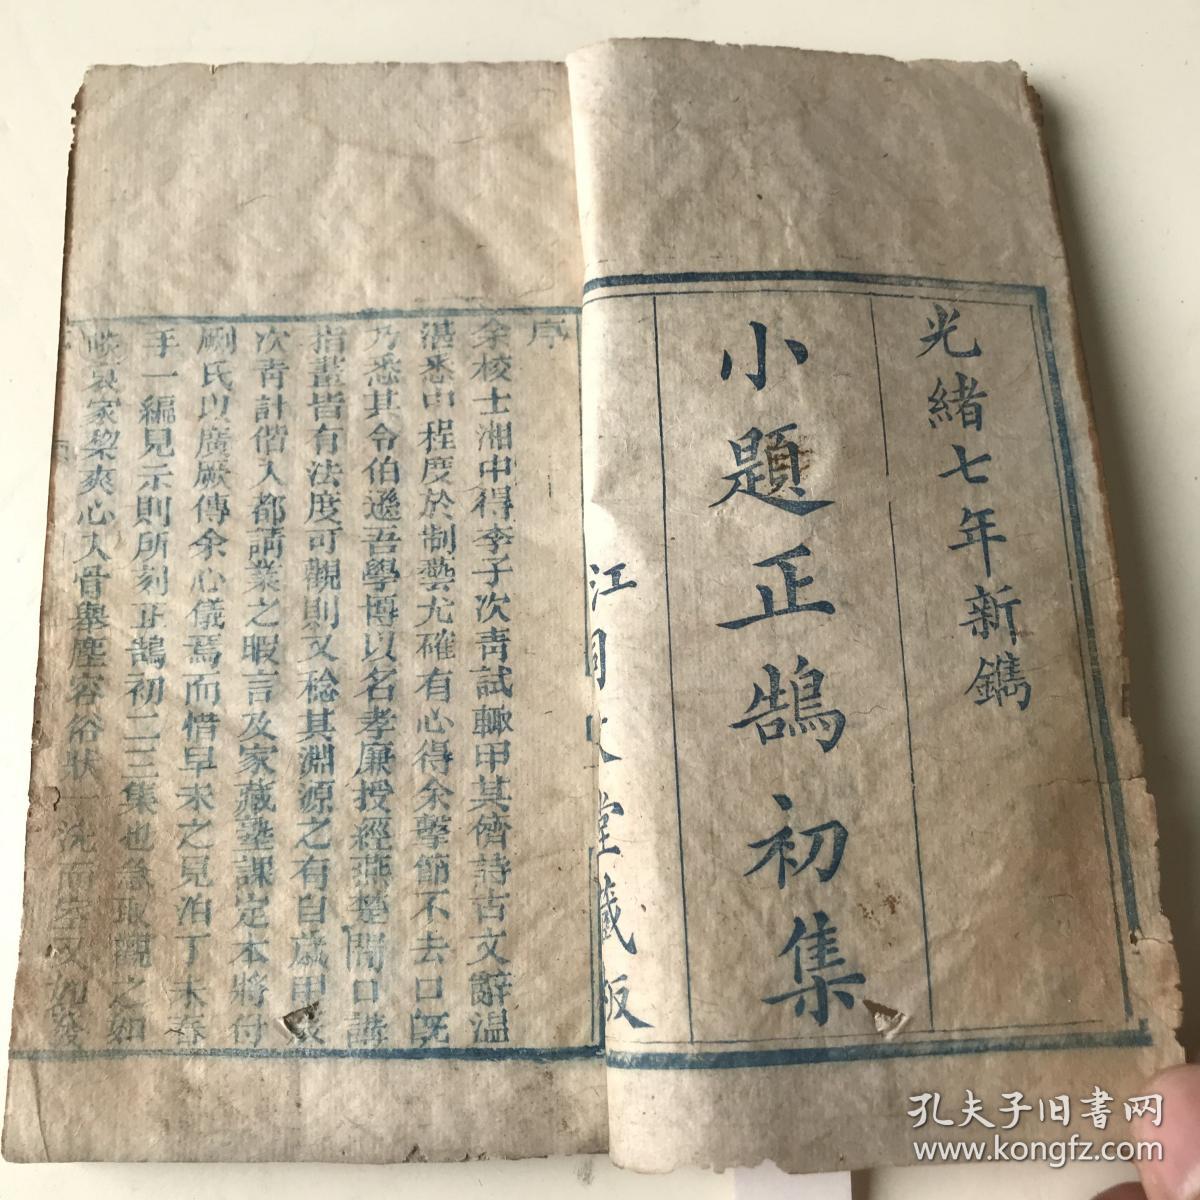 光緒七年新鐫
小題正鵠初集
江同文堂藏板
序
余校士湘中得李子次靑試輙甲其儕詩古文辭温
湛悉中程度於制藝尤確有心得余擊節不去口旣
乃悉其令伯遜吾學博以名孝廉授經燕楚間口講
指畫皆有法度可觀則又稔其淵源之有自歲甲辰
次靑計偕入都講業之暇言及家藏塾課定本將付
劂氏以廣厥傳余心儀焉而惜早未之見洎丁未春
手一編見示則所刻正鵠初二三集也急取觀之如
哀家棃爽心入骨舉塵容俗狀一洗而空又如發
孔夫子旧书网
www.kongfz.com